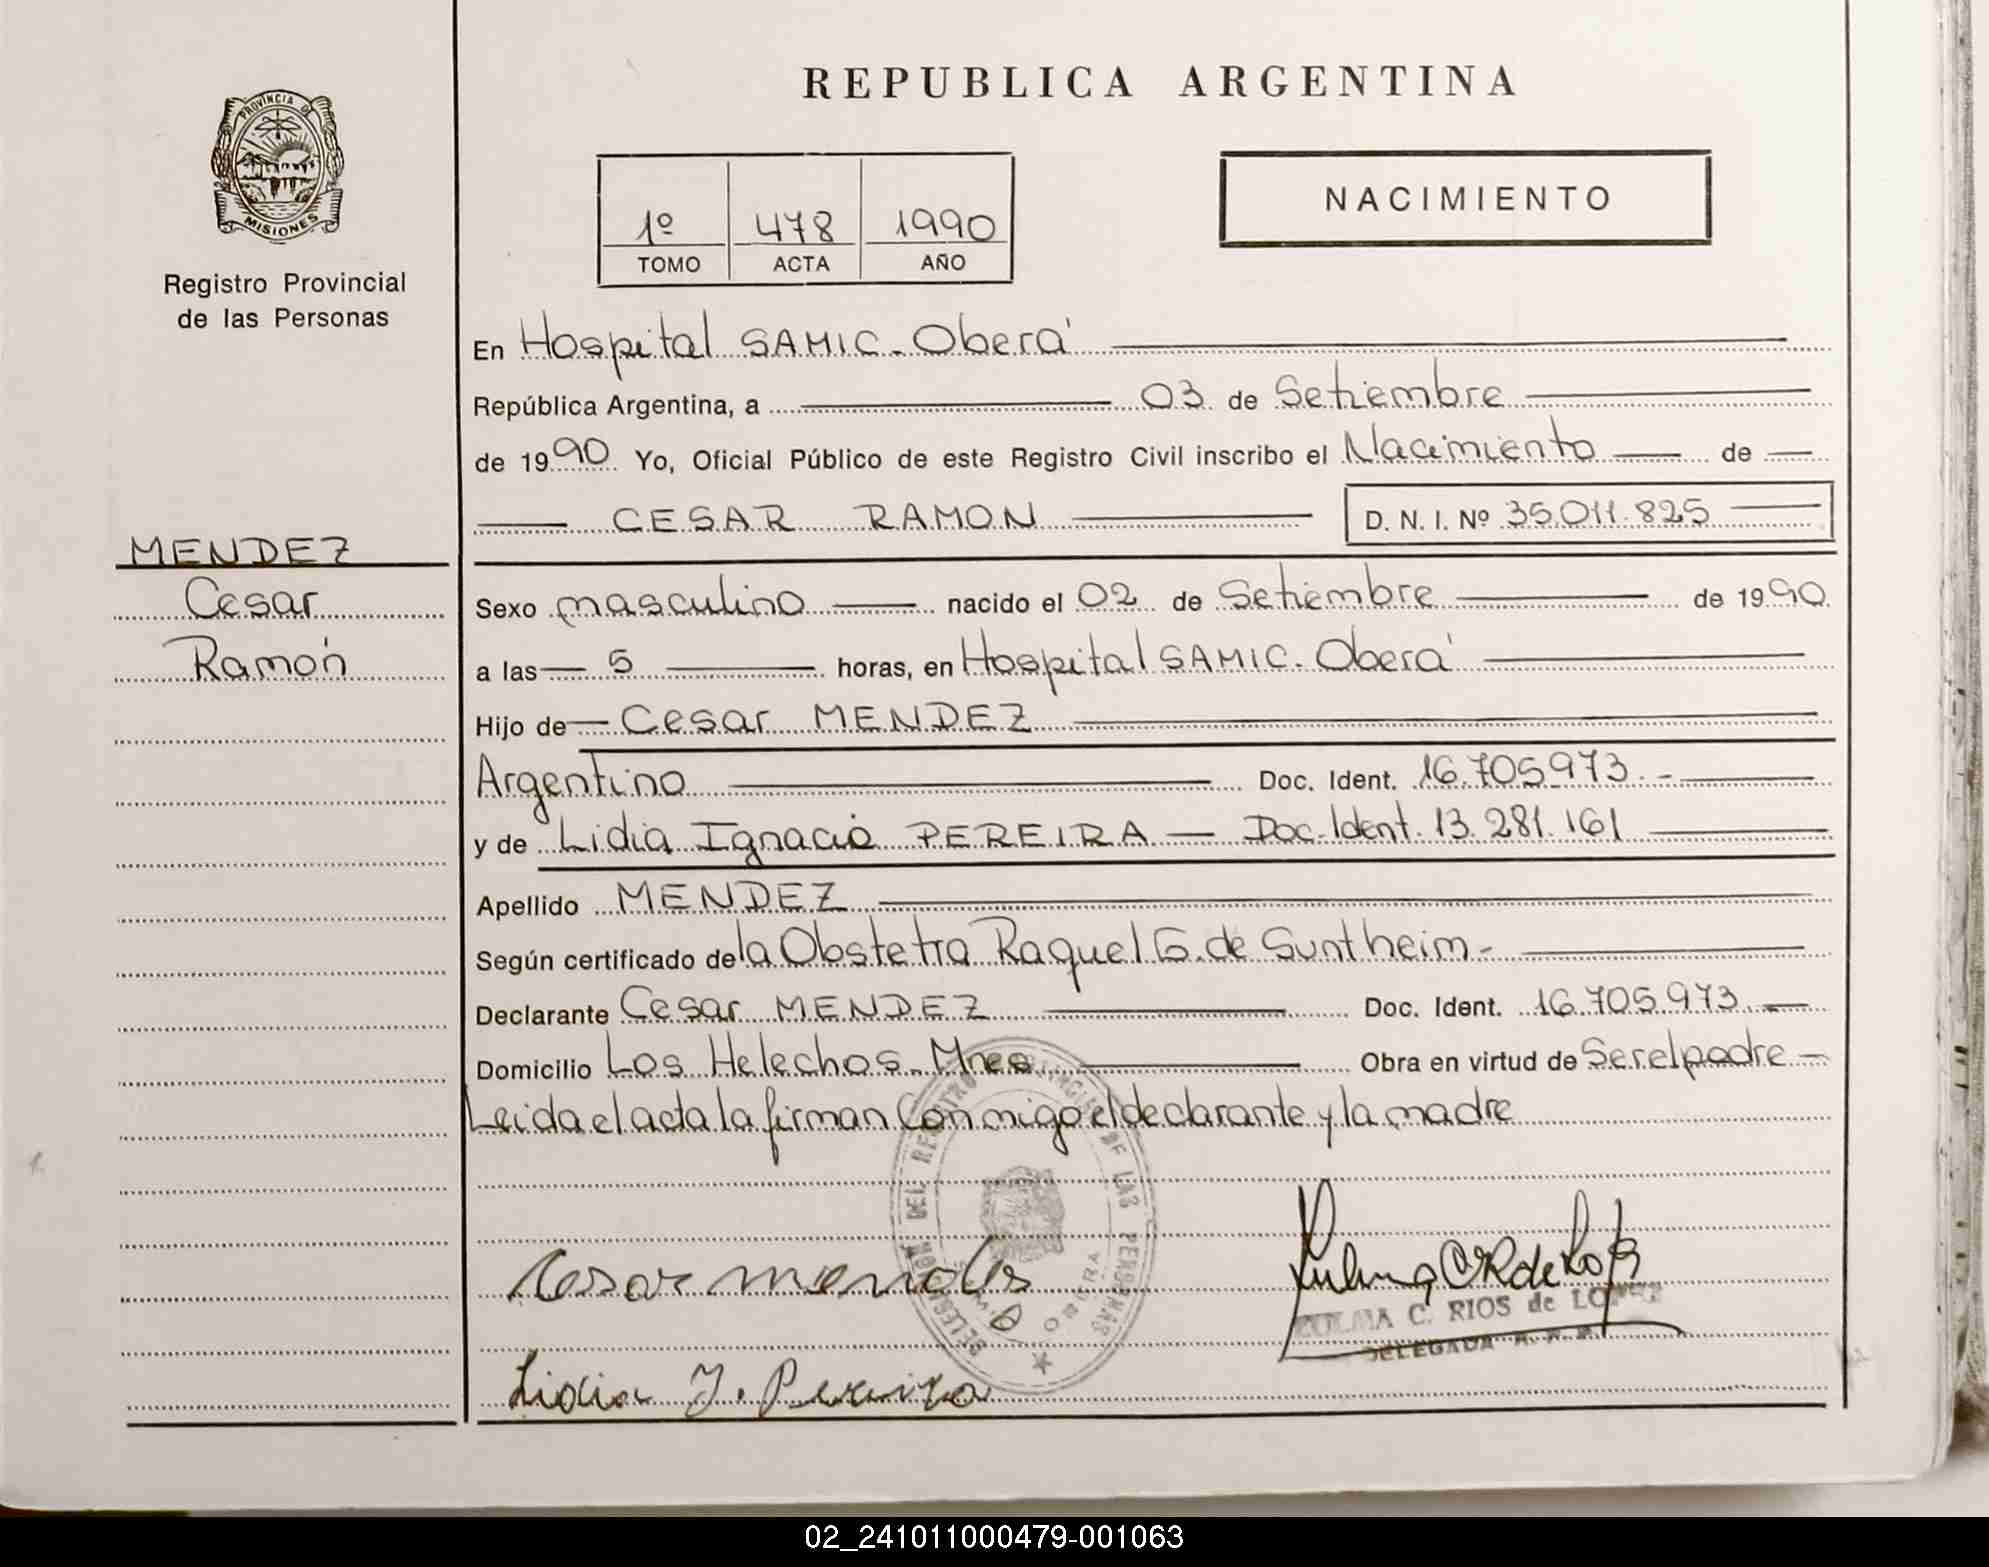 REPUBLICA ARGENTINA
PROVINCIA DE
MISIONES
Registro Provincial
de las Personas
1º 478 1990
TOMO ACTA AÑO
NACIMIENTO
En Hospital SAMIC - Oberá
República Argentina, a 03 de Setiembre
de 1990 Yo, Oficial Público de este Registro Civil inscribo el Nacimiento de
CESAR RAMON D. N. I. Nº 35.011.825
MENDEZ
Cesar
Ramón
Sexo masculino nacido el 02 de Setiembre de 1990
a las 5 horas, en Hospital SAMIC. Oberá
Hijo de Cesar MENDEZ
Argentino Doc. Ident. 16.705.973.-
y de Lidia Ignacia PEREIRA - Doc. Ident. 13.281.161
Apellido MENDEZ
Según certificado de la Obstetra Raquel G. de Suntheim-
Declarante Cesar MENDEZ Doc. Ident. 16.705.973.-
Domicilio Los Helechos. Mnes. Obra en virtud de Ser el padre -
Leida el acta la firman conmigo el declarante y la madre
DELEGACION DEL REGISTRO DE LAS PERSONAS
OBERA
Cesar mendes
ZULMA C. RIOS de LOPEZ
DELEGADA
Lidia I. Pereira
02_241011000479-001063